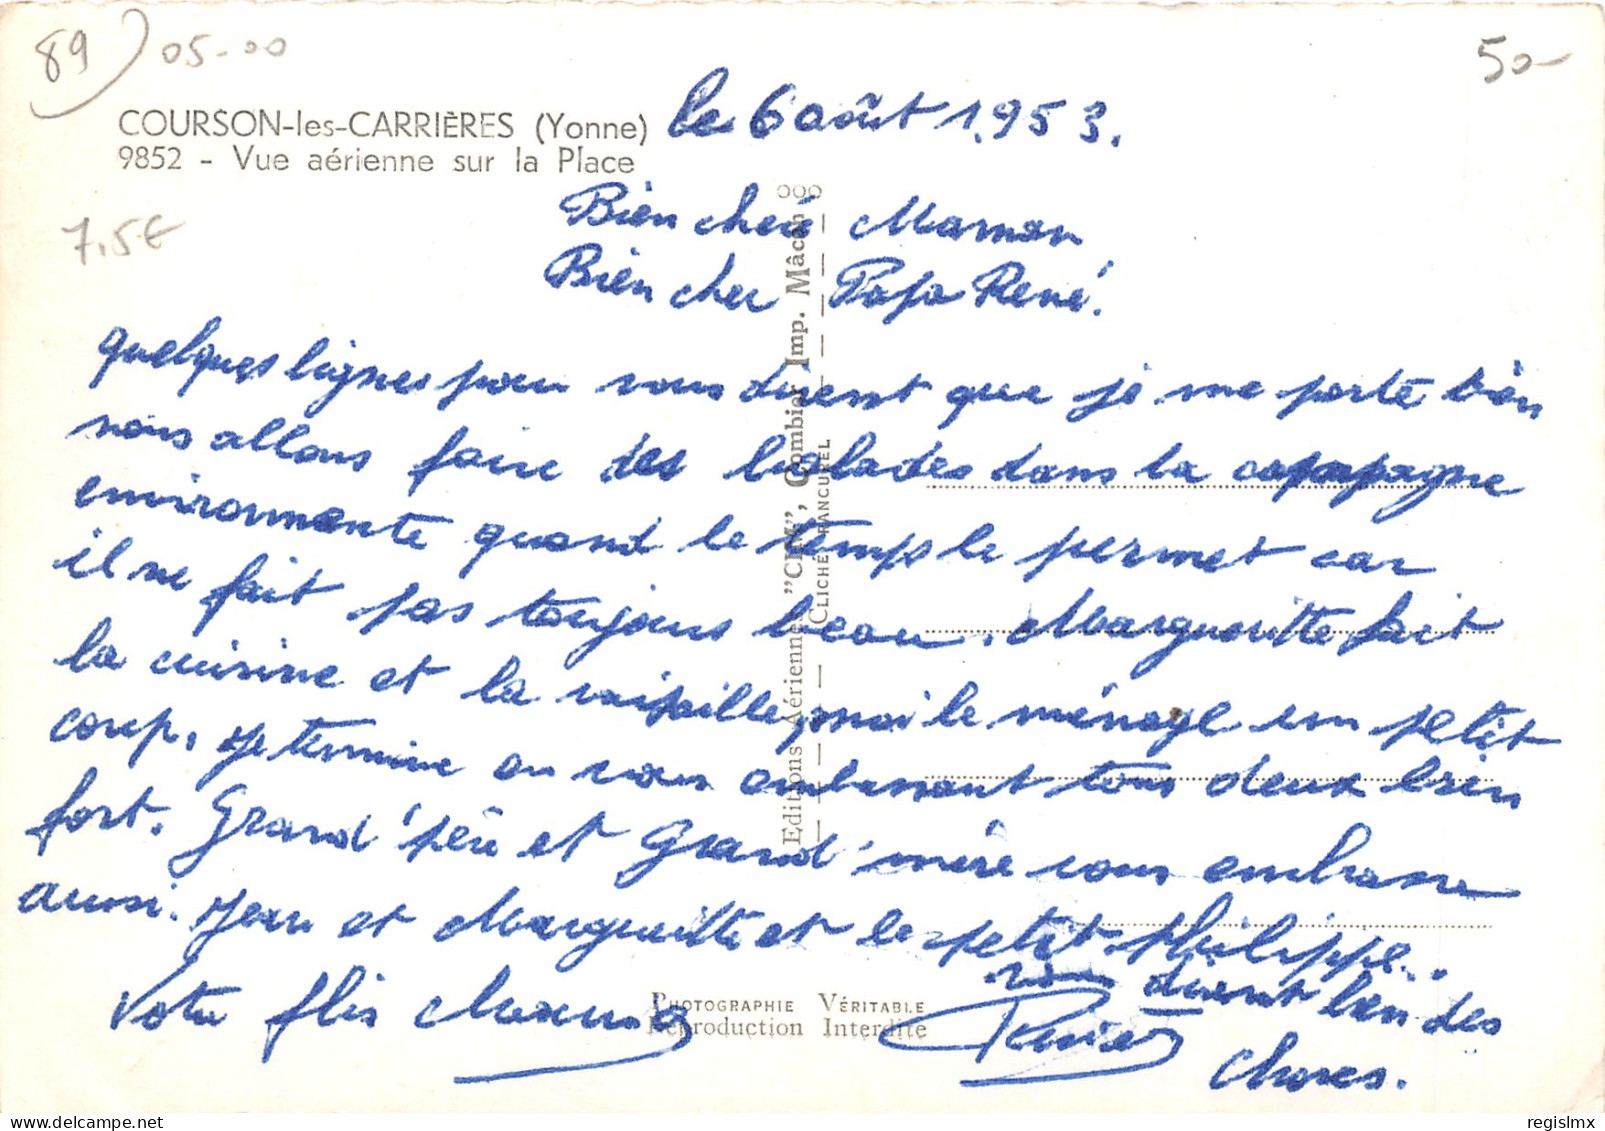 89) 05-00
50-
COURSON-les-CARRIÈRES (Yonne)
9852 - Vue aérienne sur la Place
le 6 août 1.953.
7,5€
Bien cheré Maman
Bien cher Papa René.
quelques lignes pour vous disent que je me porte bien
nous allons faire des balades dans la campagne
environnante quand le temps le permet car
il ne fait pas toujours beau. Margueritte fait
la cuisine et la vaisselle, moi le ménage un petit
coup. Je termine en vous embrassant tous deux bien
fort. Grand'père et Grand'mère vous embrasse
aussi. Jean et Margueritte et le petit Philippe..
vous disent bien des
choses.
Votre fils
Editions Aériennes "CIM", Combier Imp. Mâcon
CLICHÉ RANCUREL
PHOTOGRAPHIE VÉRITABLE
Reproduction Interdite
regislmx